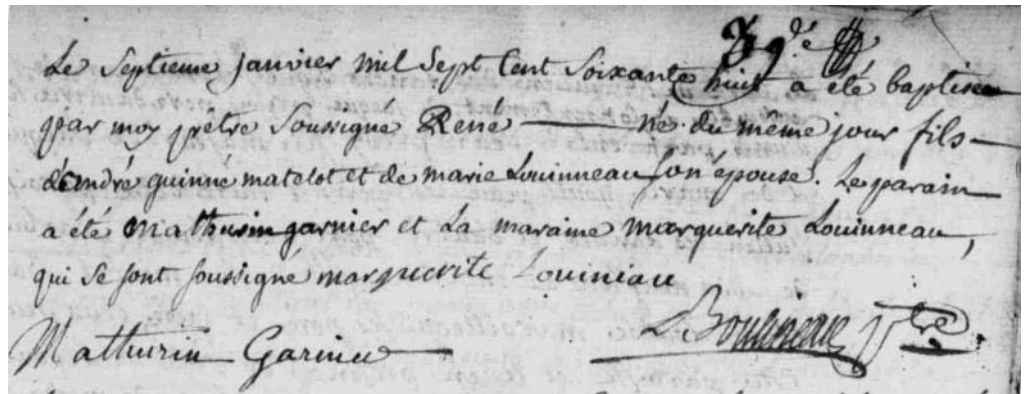 39.e
Le Septieme janvier mil Sept Cent Soixante huit a été baptisee
par moy prêtre Soussigne René né du même jour fils
d'andré guinné matelot et de marie Louinneau son épouse. Le parain
a été mathurin garnier et La maraine marguerite Louinneau,
qui Se sont soussigné marguerite Louiniau
Mathurin Garinier Ptre.